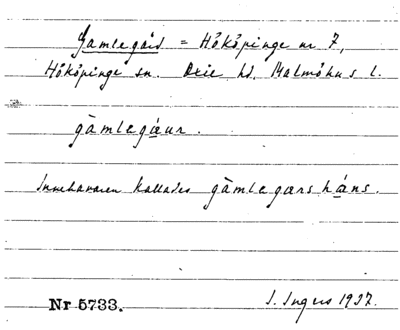 Gamlegård = Hököpinge nr 7,
Hököpinge sn. Oxie hd, Malmöhus l.
gàmlegǫur.
Innehavaren kallades gàmlegǫrs háns.
Nr 5733.
I. Ingers 1937.